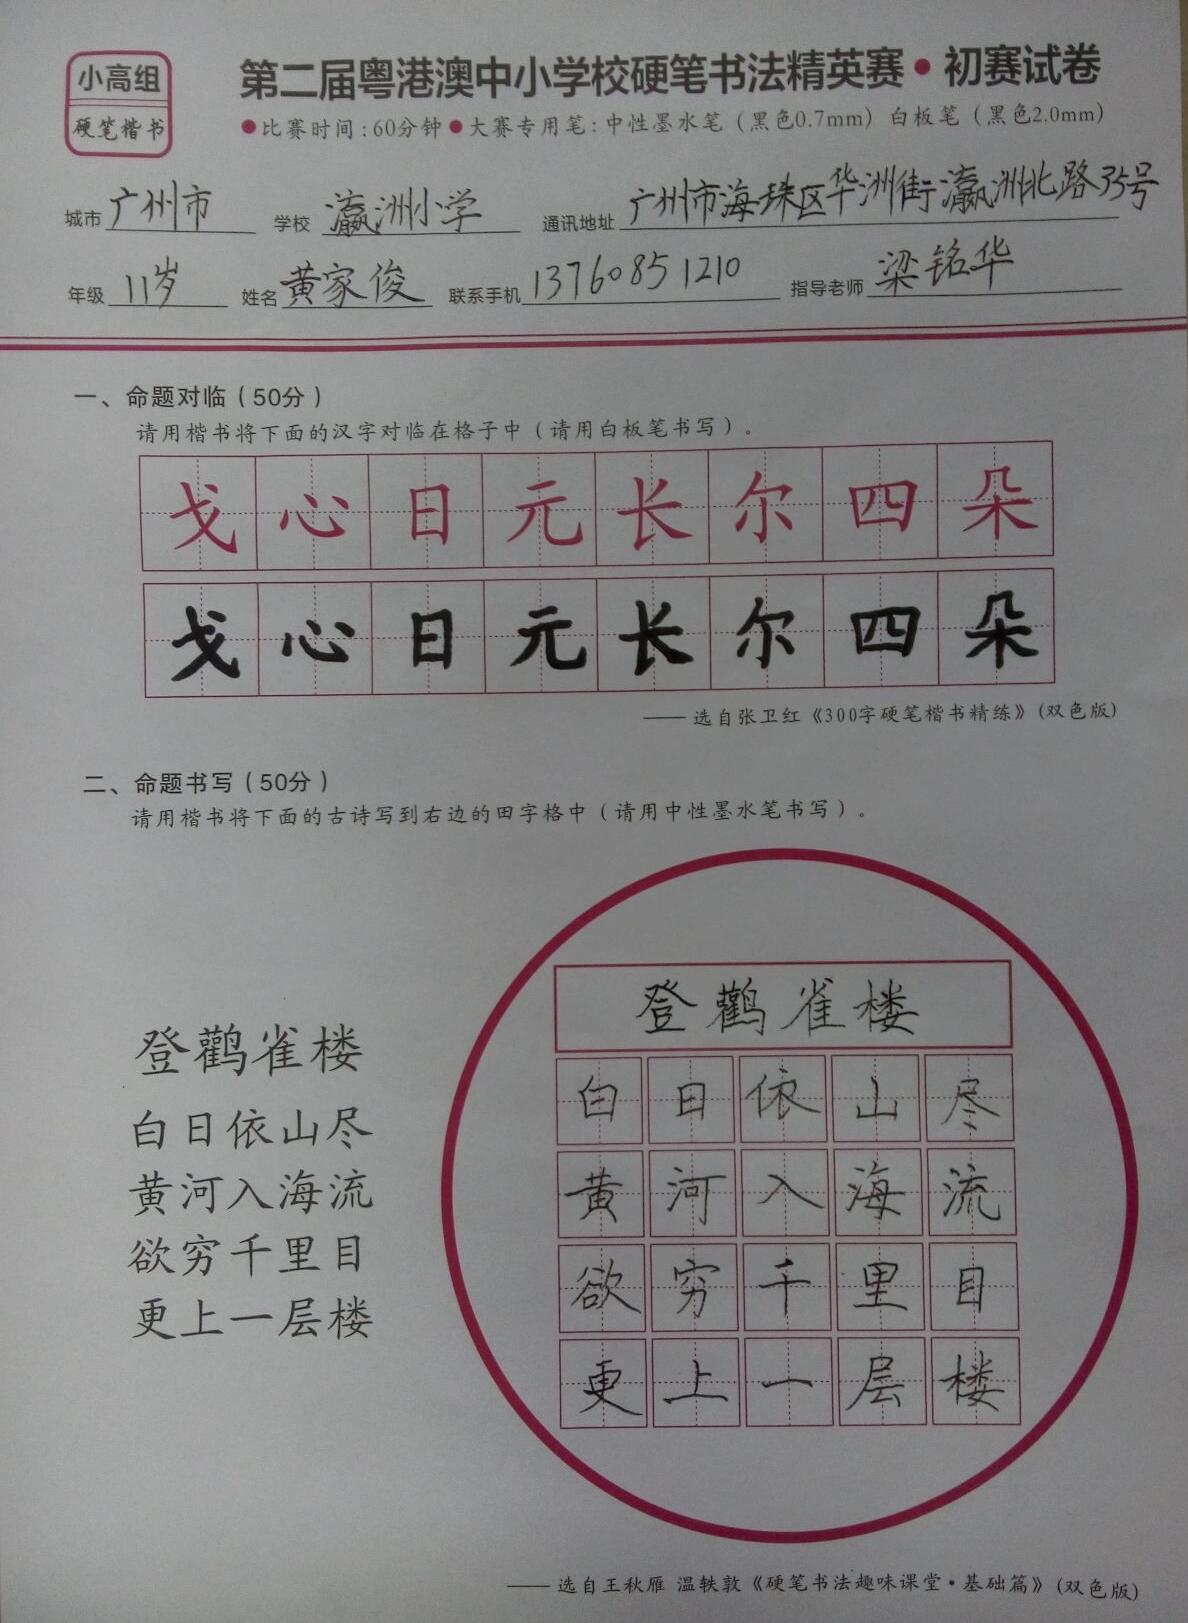 小高组
硬笔楷书
第二届粤港澳中小学校硬笔书法精英赛·初赛试卷
●比赛时间:60分钟●大赛专用笔:中性墨水笔（黑色0.7mm）白板笔（黑色2.0mm）
城市 广州市 学校 瀛洲小学 通讯地址 广州市海珠区华洲街瀛洲北路35号
年级 11岁 姓名 黄家俊 联系手机 13760851210 指导老师 梁铭华
一、命题对临（50分）
请用楷书将下面的汉字对临在格子中（请用白板笔书写）。
戈心日元长尔四朵
戈心日元长尔四朵
——选自张卫红《300字硬笔楷书精练》(双色版)
二、命题书写（50分）
请用楷书将下面的古诗写到右边的田字格中（请用中性墨水笔书写）。
登鹳雀楼
白日依山尽
黄河入海流
欲穷千里目
更上一层楼
登鹳雀楼
白日依山尽
黄河入海流
欲穷千里目
更上一层楼
——选自王秋雁 温轶敦《硬笔书法趣味课堂·基础篇》(双色版)